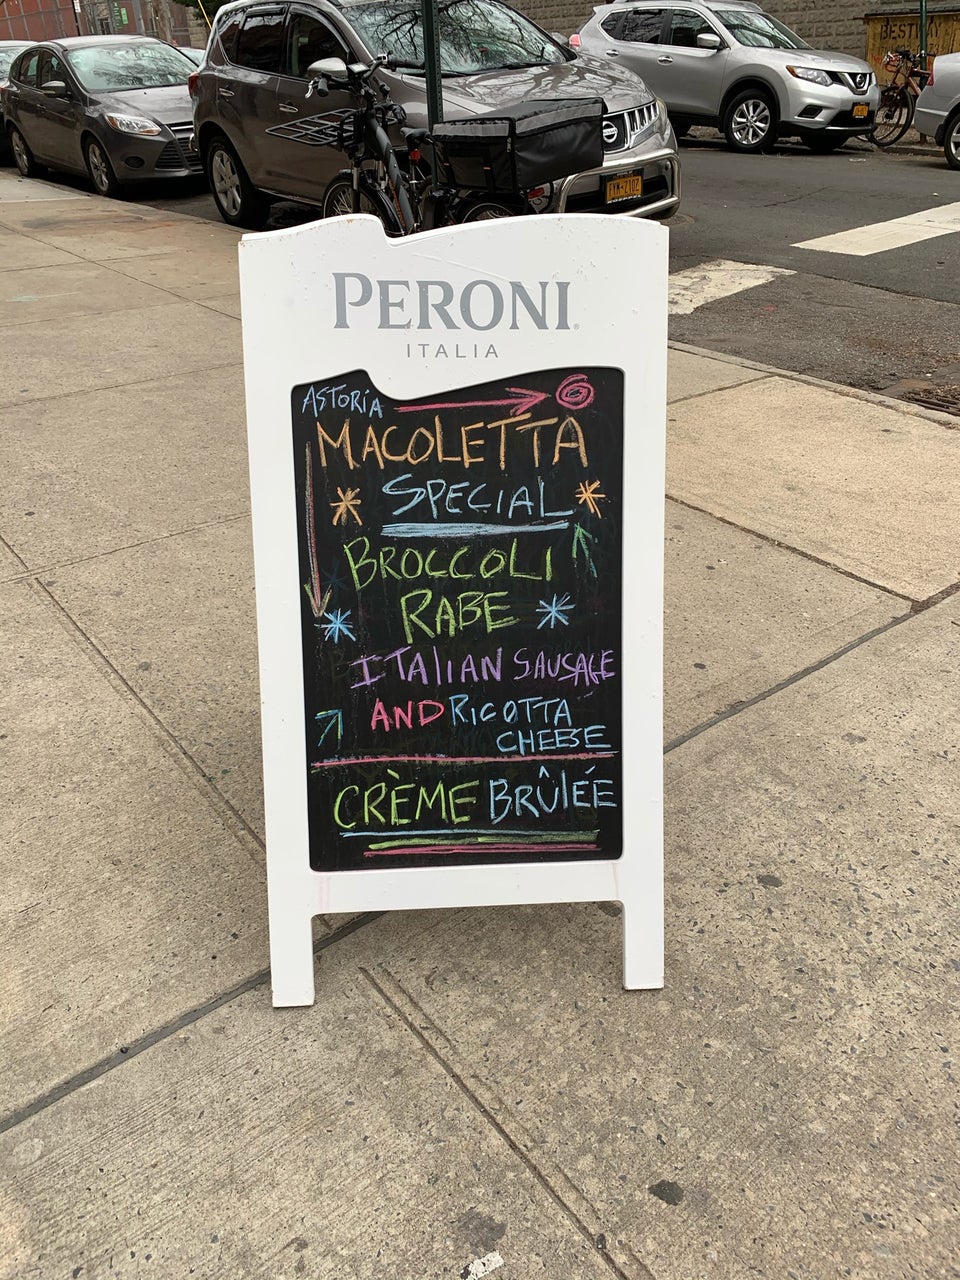 BEST
PERONI
ITALIA
ASTORIA
MACOLETTA
SPECIAL
BROCCOLI
RABE
ITALIAN SAUSAGE
AND RICOTTA
CHEESE
CRÈME BRÛLÉE